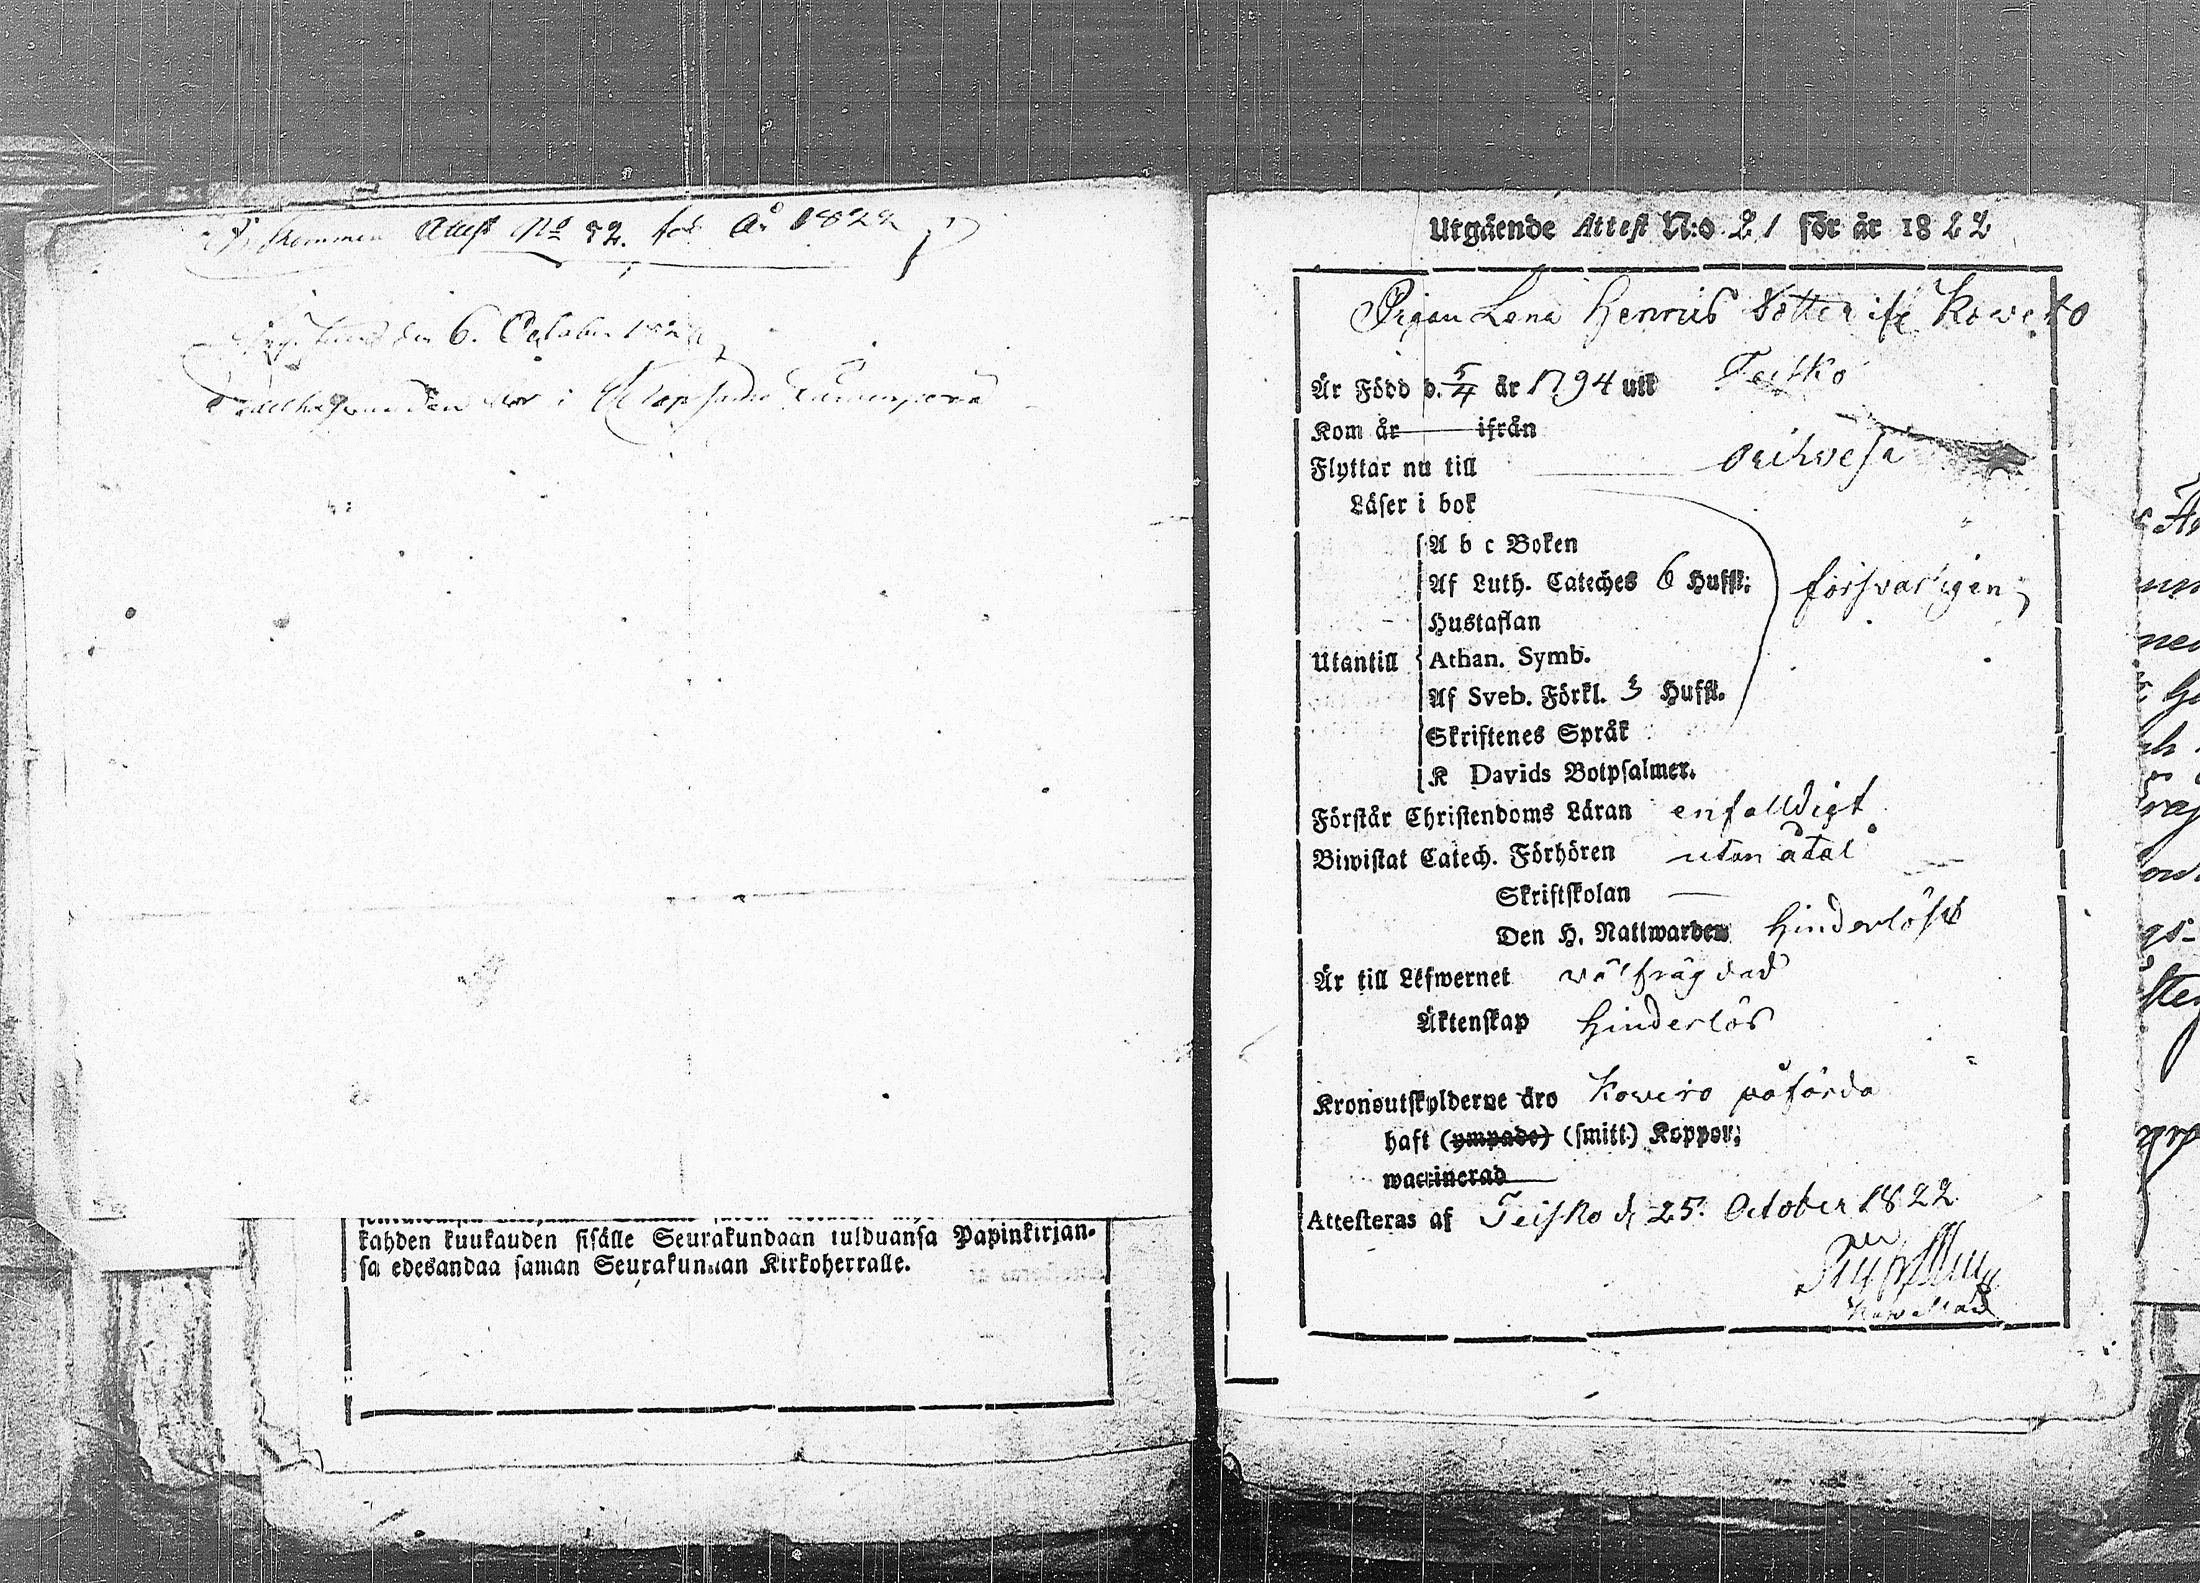 kommen Attest No 52. för År 1822
den 6. October 1822
kahden kuukauden sisälle Seurakundaan tulduansa Papinkirjan-
sa edesandaa saman Seurakunnan Kirkoherralle.
Utgående Attest N:o 21 för år 1822
Pigan Lena Henrics Dotter ifr Kowero
Är Född d. 5/4 år 1794 uti Teisko
Kom år ifrån
Flyttar nu till Orihvesi
Läser i bok
A b c Boken
Af Luth. Cateches 6 Hufst: försvarligen
Hustaflan
Utantill Athan. Symb.
Af Sveb. Förkl. 3 Hufst.
Skriftenes Språk
K Davids Botpsalmer.
Förstår Christendoms Läran enfalldigt
Biwistat Catech. Förhören utan åtal
Skriftskolan
Den H. Nattwarden hinderlöst
Är till Lefwernet välfrägdad
Äktenskap hinderlös
Kronoutskylderne äro Kowero påförda
haft (ympade) (smitt.) Koppor;
waccinerad
Attesteras af Teisko d. 25. October 1822